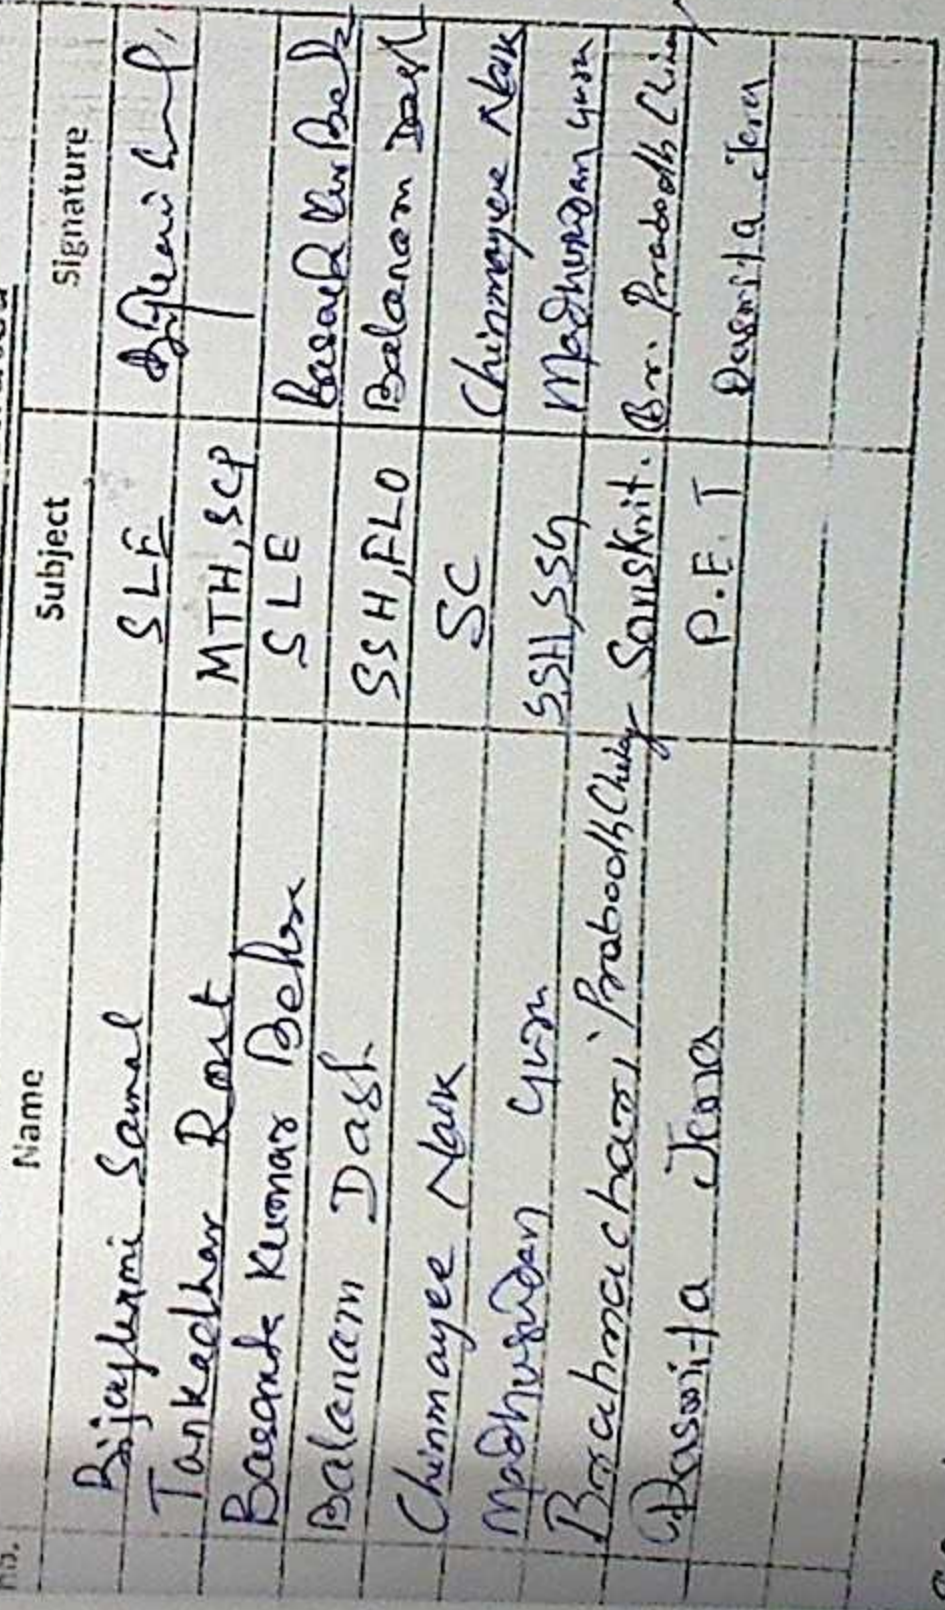 no. Name Subject Signature
Bijaylaxmi Samal SLE
Tankadhar Rout MTH, SCP
Basanta Kumar Behera SLE Basanta Kur Beh
Balaram Dash SSH, FLO Balaram Dash
Chinmayee Naik SC Chinmayee Naik
Madhusudan Guru SSH, SSG Madhusudan Guru
Brahmachari Prabodh Chaitanya Sanskrit. Br. Prabodh Chai
Dasmita Jena P.E.T Dasmita Jena